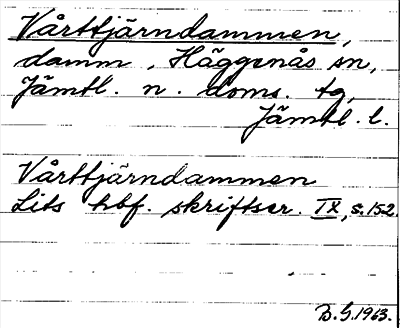 Vårttjärndammen,
damm, Häggenås sn,
Jämtl. n. doms. tg,
Jämtl. l.
Vårttjärndammen
Lits hbf. skriftser. IX, s. 152.
B.G. 1963.